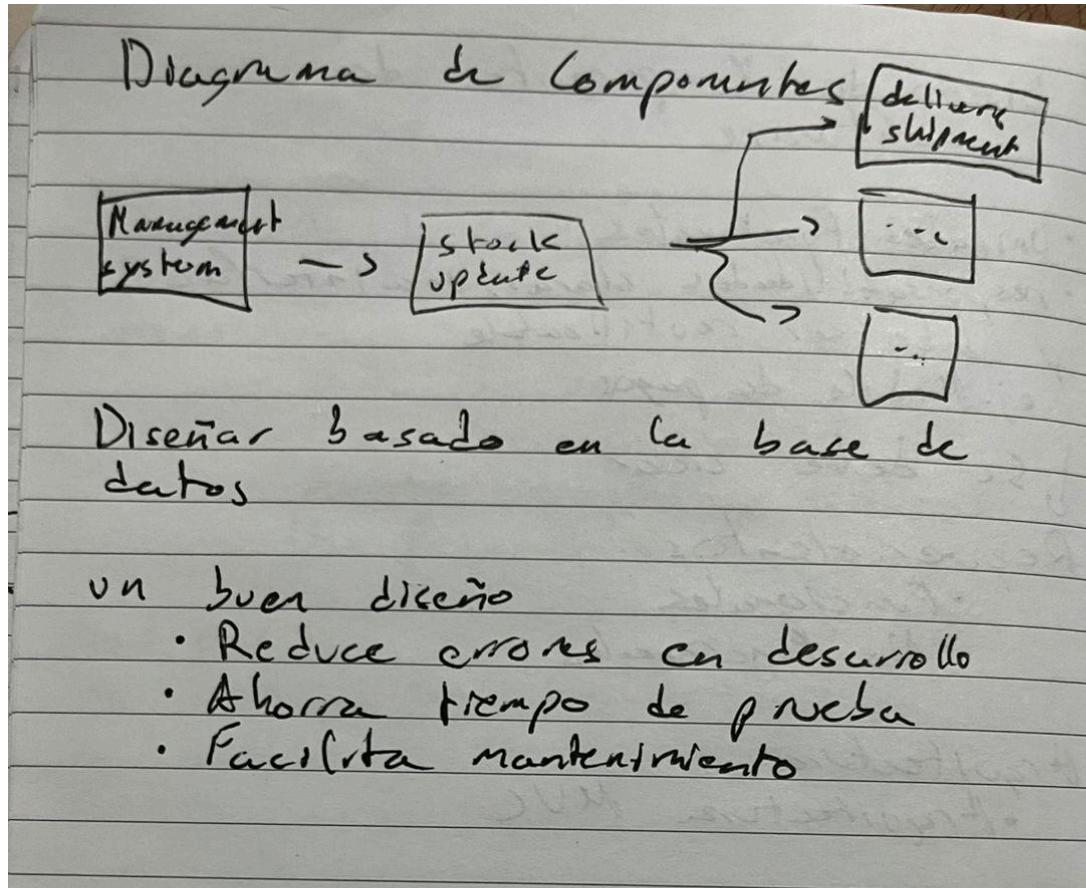 Diagrama de Componentes
delivery
shipment
Management
system
stock
update
...
...
Diseñar basado en la base de
datos
un buen diseño
· Reduce errores en desarrollo
· Ahorra tiempo de prueba
· Facilita mantenimiento